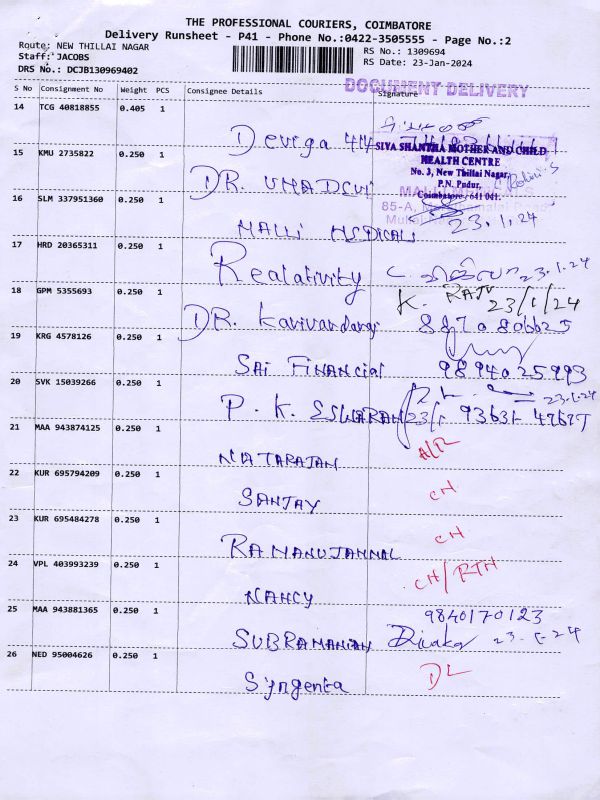 THE PROFESSIONAL COURIERS, COIMBATORE
Delivery Runsheet - P41 - Phone No.:0422-3505555 - Page No.:2
Route: NEW THILLAI NAGAR
Staff: JACOBS
DRS No.: DCJB130969402
RS No.: 1309694
RS Date: 23-Jan-2024
DOCUMENT DELIVERY
S No Consignment No Weight PCS Consignee Details Signature
14 TCG 40818855 0.405 1
Devega
SIYA SHANTHA MOTHER AND CHILD
HEALTH CENTRE
No. 3, New Thillai Nagar,
P.N. Pudur,
Coimbatore - 641 041.
15 KMU 2735822 0.250 1
DR. UMADEVI
16 SLM 337951360 0.250 1
85-A,
23.1.24
MALLI MEDICALS
17 HRD 20365311 0.250 1
Realativity 23.1.24
18 GPM 5355693 0.250 1
K. RAJU 23/1/24
DR. Karivardangi
19 KRG 4578126 0.250 1
SAI FINANCIAL 9894025993
20 SVK 15039266 0.250 1
23.1.24
P. K. ESWARAN 23/1
21 MAA 943874125 0.250 1
NATARAJAN
22 KUR 695794209 0.250 1
CH
SANJAY
23 KUR 695484278 0.250 1
CH
RAMANUJAMMAL
24 VPL 403993239 0.250 1
CH/RTH
NANCY
25 MAA 943881365 0.250 1
9840170123
SUBRAMANIAN Divakar 23.1.24
26 NED 95004626 0.250 1
DL
Syngenta